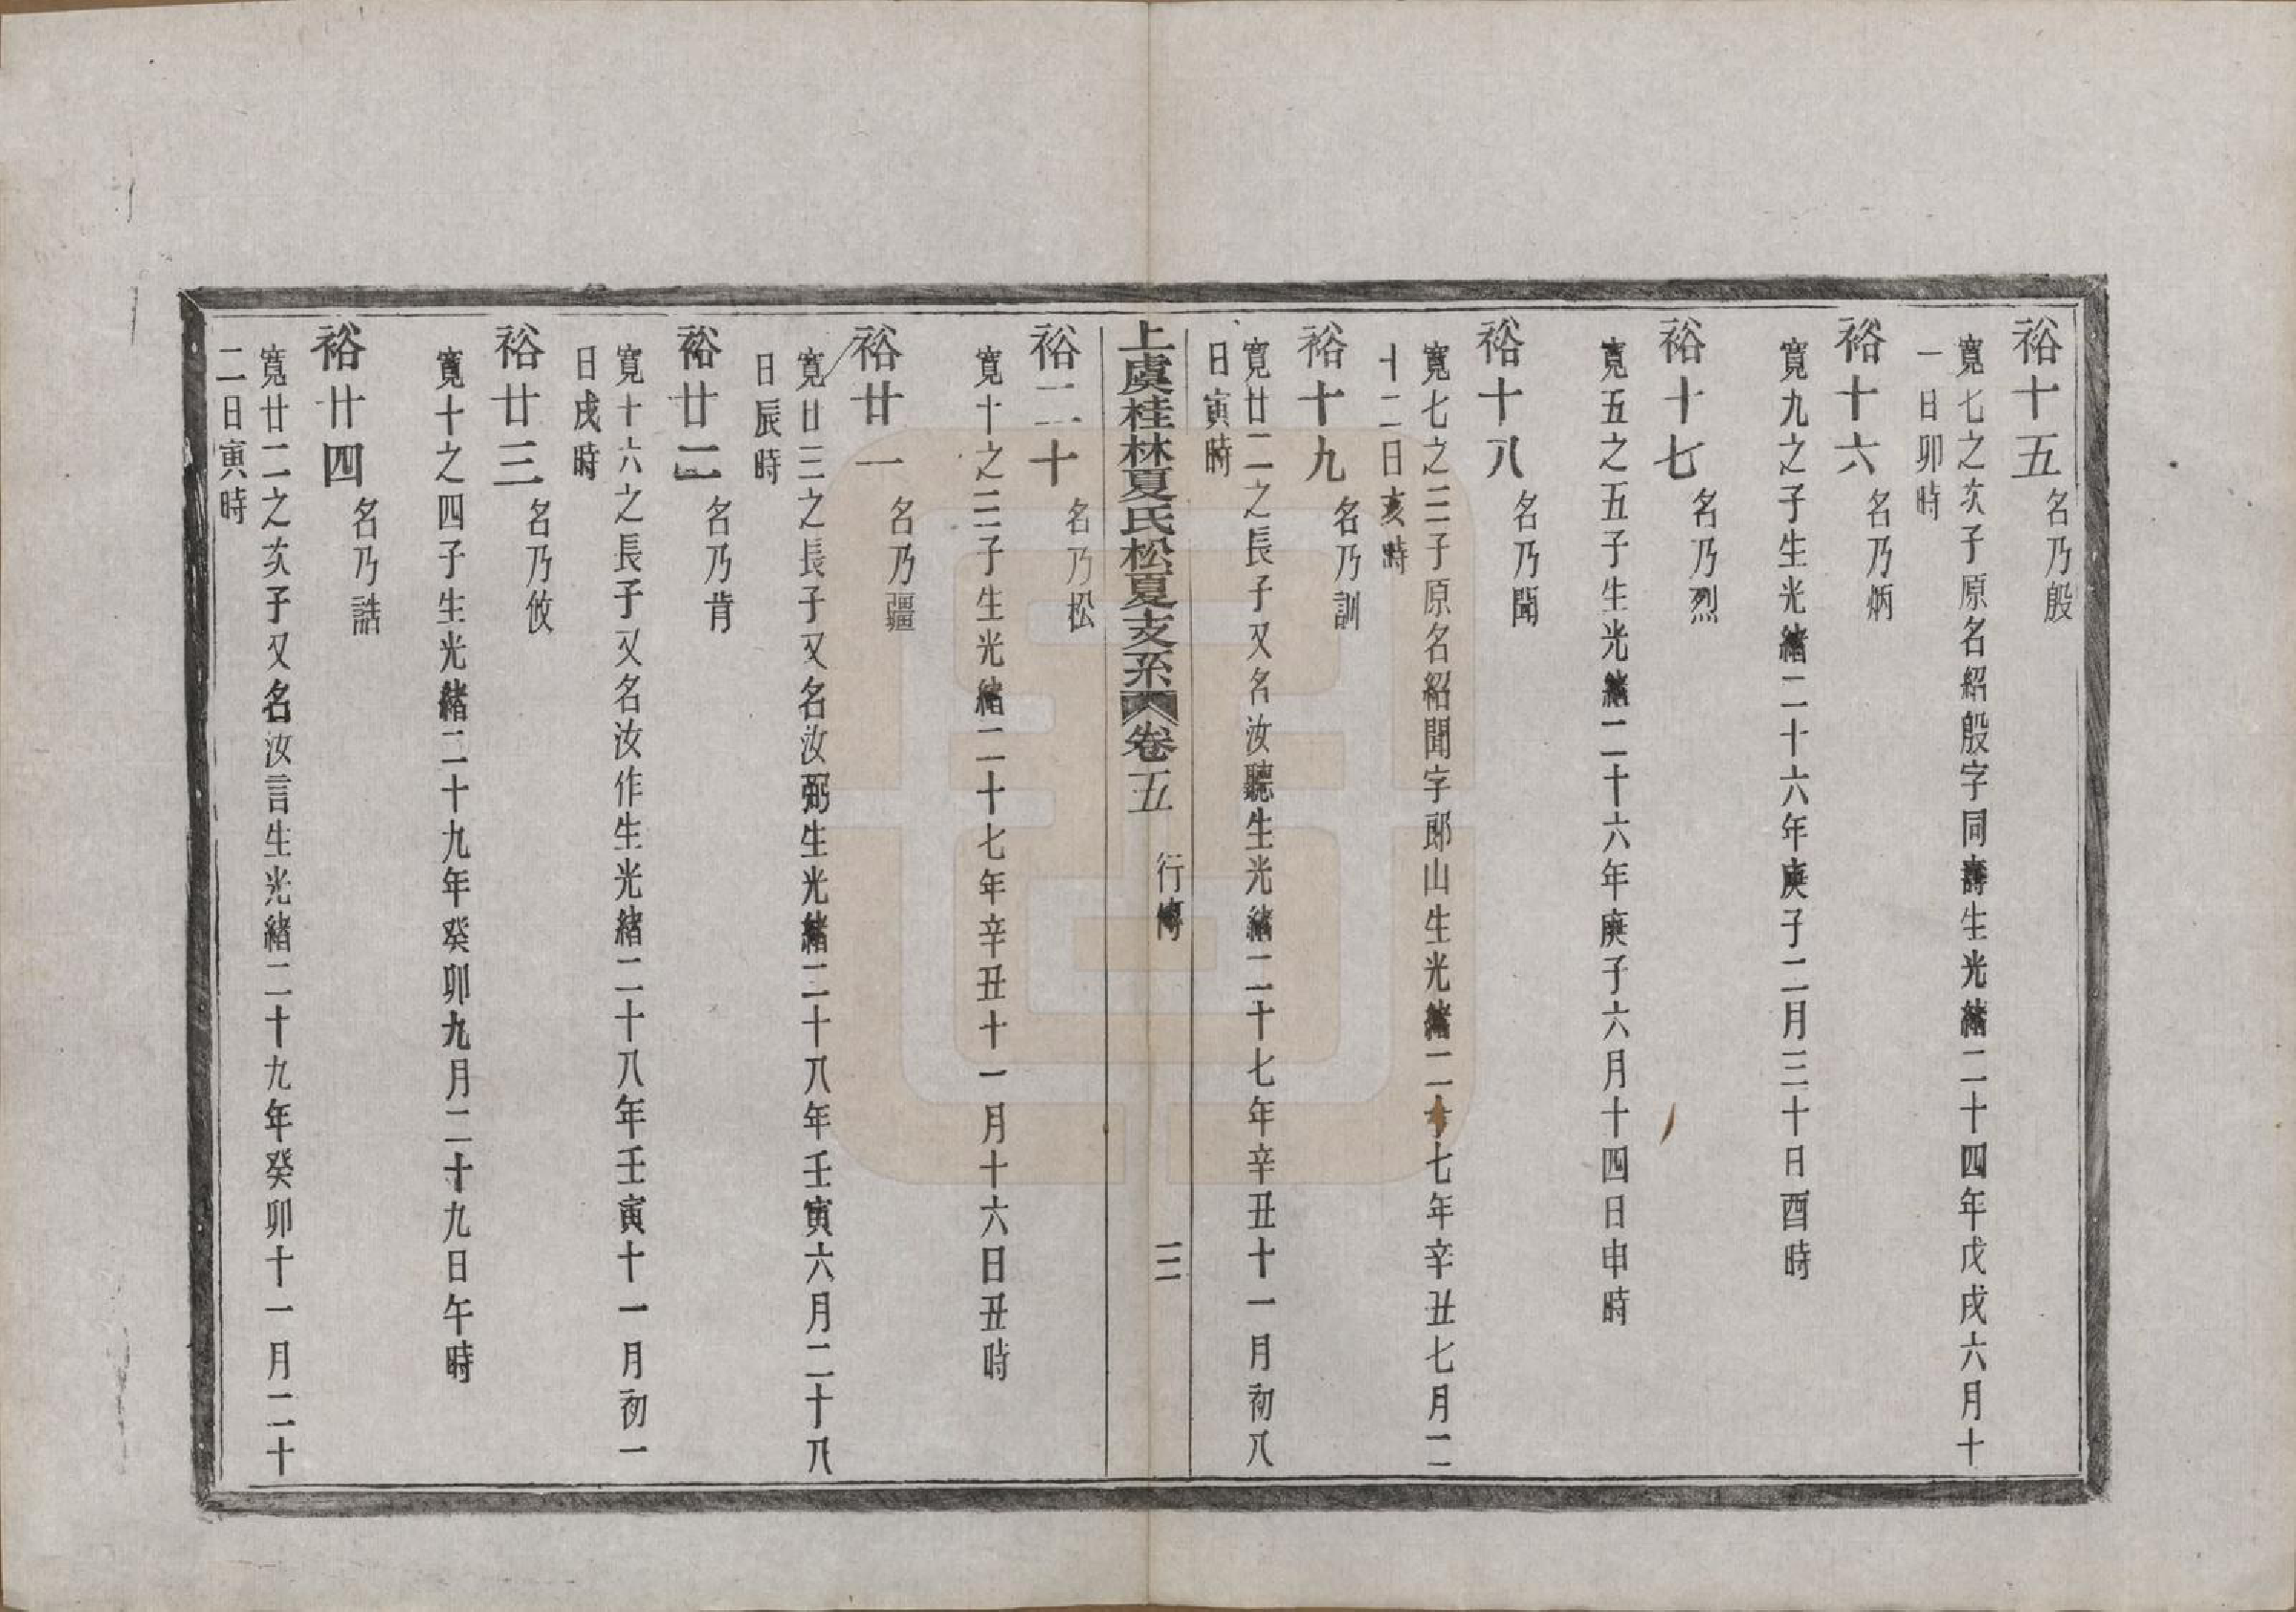 裕十五
名乃殷
寬七之次子原名紹殷字同壽生光緒二十四年戊戌六月十
一日卯時
裕十六
名乃炳
寬九之子生光緒二十六年庚子二月三十日酉時
裕十七
名乃烈
寬五之五子生光緒二十六年庚子六月十四日申時
裕十八
名乃聞
寬七之三子原名紹聞字郎山生光緒二十七年辛丑七月二
十二日亥時
裕十九
名乃訓
寬廿二之長子又名汝聽生光緒二十七年辛丑十一月初八
日寅時
上虞桂林夏氏松夏支系卷五
行傳
三
裕二十
名乃松
寬十之三子生光緒二十七年辛丑十一月十六日丑時
裕廿一
名乃疆
寬廿三之長子又名汝弼生光緒二十八年壬寅六月二十八
日辰時
裕廿二
名乃肯
寬十六之長子又名汝作生光緒二十八年壬寅十一月初一
日戌時
裕廿三
名乃攸
寬十之四子生光緒二十九年癸卯九月二十九日午時
裕廿四
名乃誥
寬廿二之次子又名汝言生光緒二十九年癸卯十一月二十
二日寅時